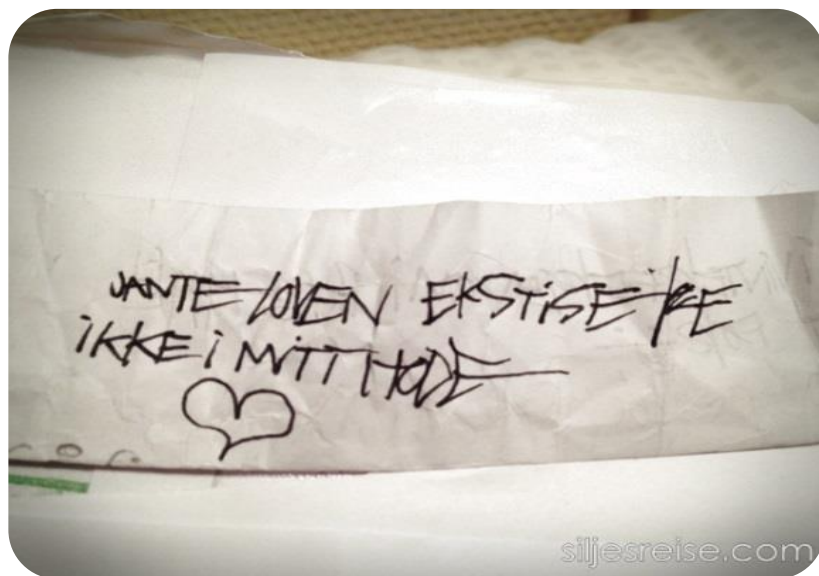 JANTELOVEN EKSTiSERE
iKKE i MiTT HODE
siljesreise.com